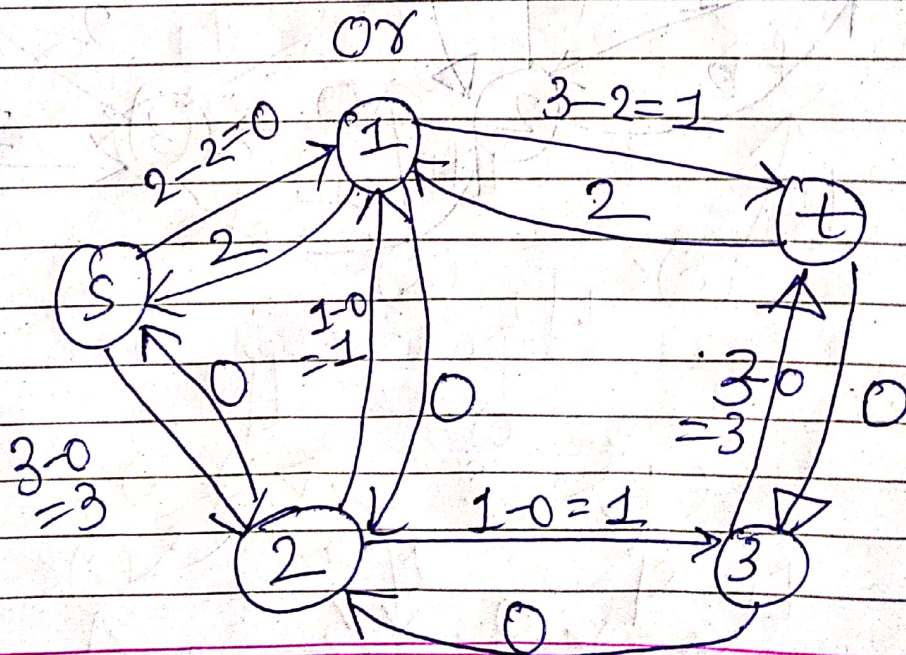 or
3-2=1
2-2=0
1
2
t
2
S
1-0
=1
0
0
3-0
=3
0
3-0
=3
1-0=1
2
3
0